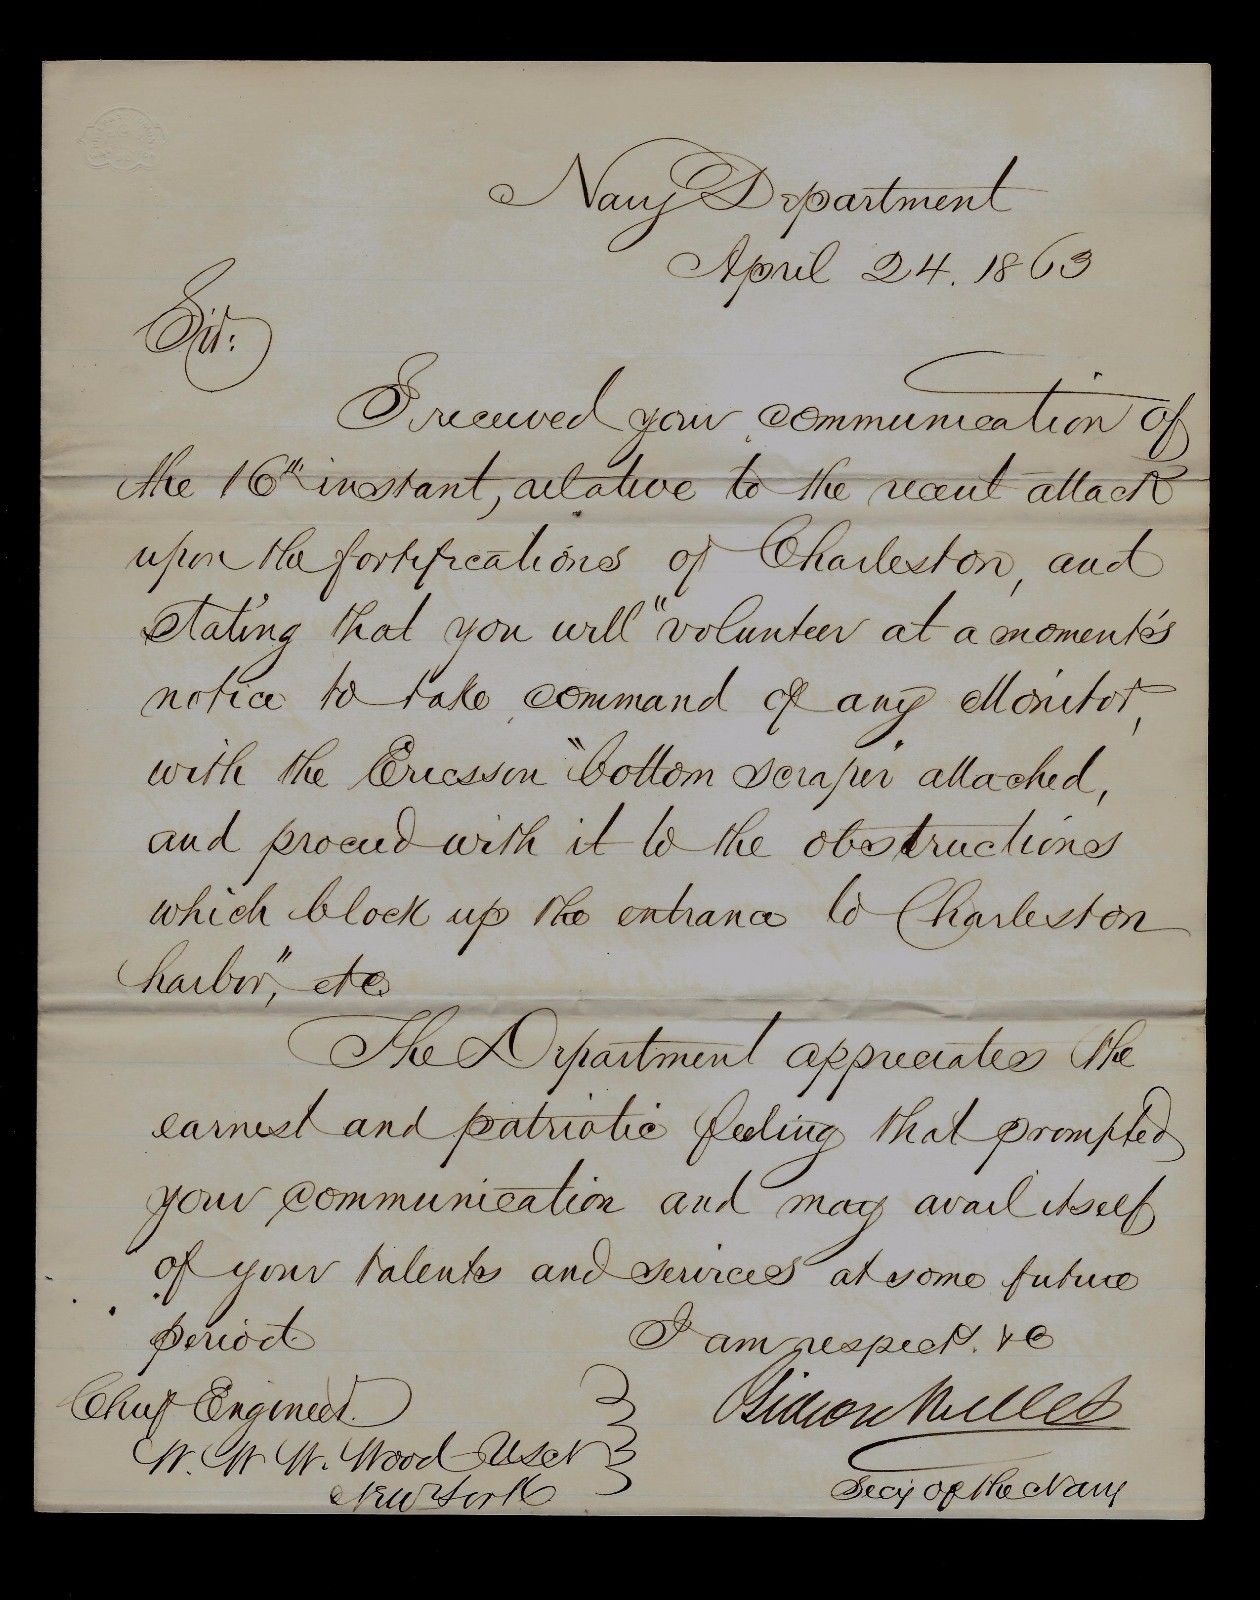 Navy Department
April 24. 1863
Sir:
I received your communication of
the 16th instant, relative to the recent attack
upon the fortifications of Charleston, and
stating that you will "volunteer at a moment's
notice to take command of any Monitor,
with the Ericsson "bottom scraper" attached,
and proceed with it to the obstructions
which block up the entrance to Charleston
harbor", etc
The Department appreciates the
earnest and patriotic feeling that prompted
your communication and may avail itself
of your talents and services at some future
period.
I am respect. &c
Gideon Welles
Secy of the Navy
Chief Engineer.
W. W. W. Wood USN
New York